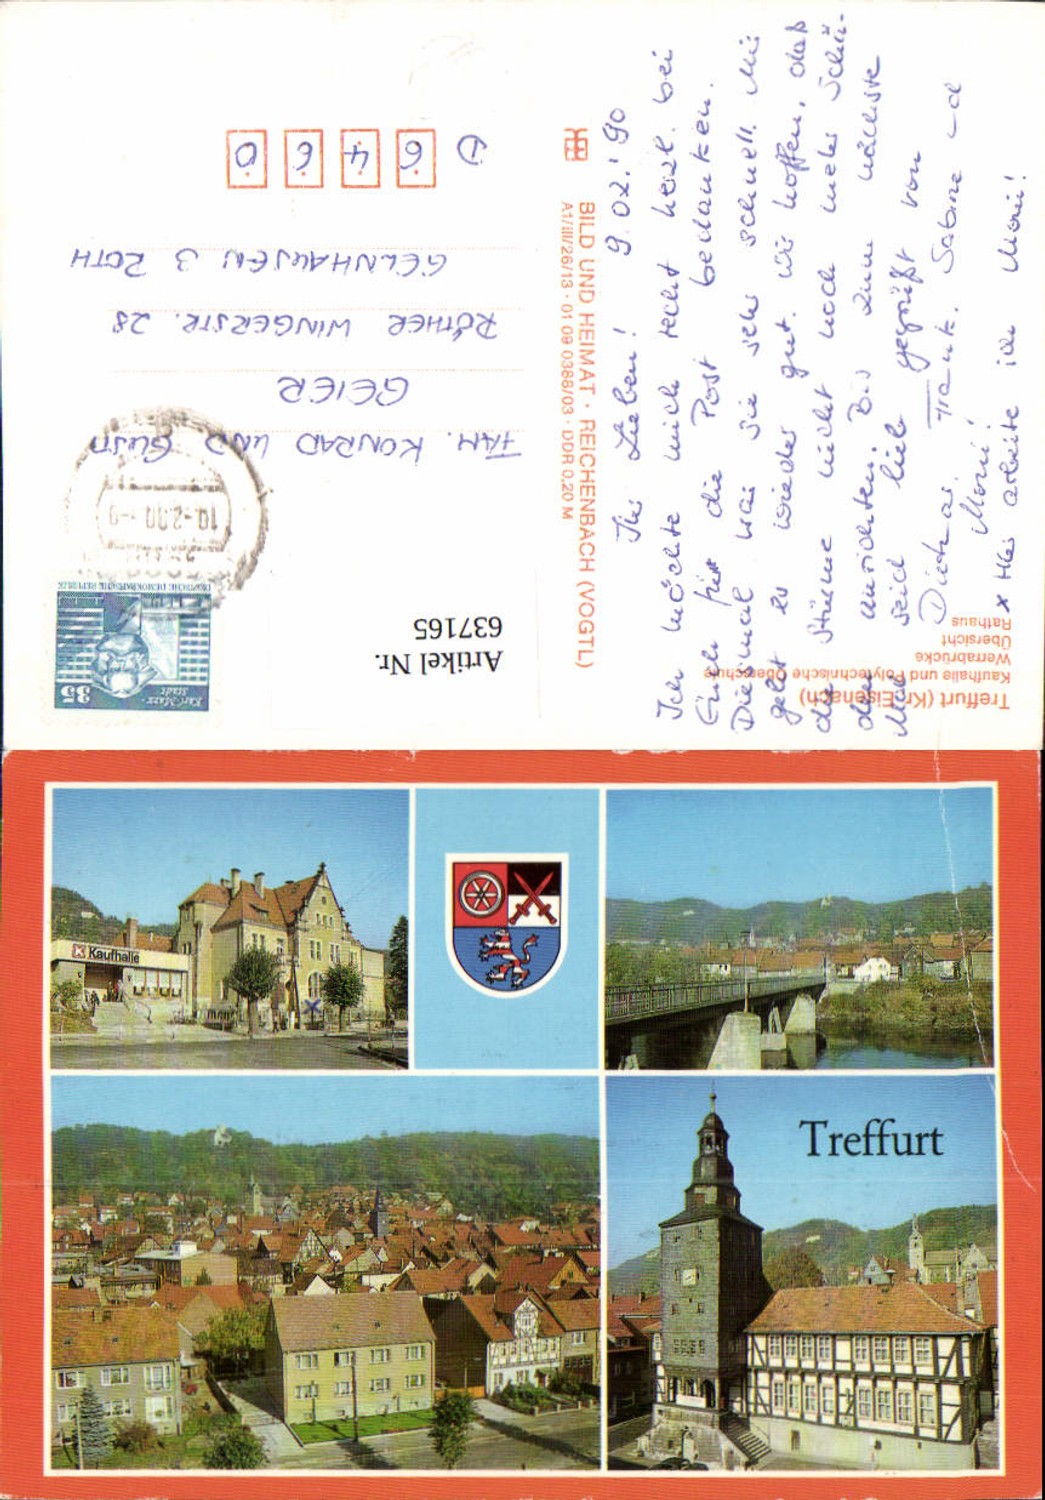 Treffurt (Kr. Eisenach)
Kaufhalle und Polytechnische Oberschule
Werrabrücke
Übersicht
Rathaus
9.02.'90
Ihr Lieben!
Ich möchte mich recht herzl. bei
Euch für die Post bedanken.
Diesmal war sie sehr schnell. Mir
geht es wieder gut. Wir hoffen, daß
die Stürme nicht noch mehr Schä-
den anrichten. Bis zum nächste
Mal seid lieb gegrüßt von
Dietmar, Frank, Sabine und
Moni!
x Hier arbeite ich Moni!
BILD UND HEIMAT · REICHENBACH (VOGTL)
A1/III/26/13 · 01 09 0386/03 · DDR 0,20 M
Karl-Marx-
Stadt
35
DEUTSCHE DEMOKRATISCHE REPUBLIK
10.-2.90 -9
Artikel Nr.
637165
FAM. KONRAD UND GUSTI
GEIER
RÖTHER WINGERSTR. 28
GELNHAUSEN 3 ROTH
D 6 4 6 0
Kaufhalle
Treffurt